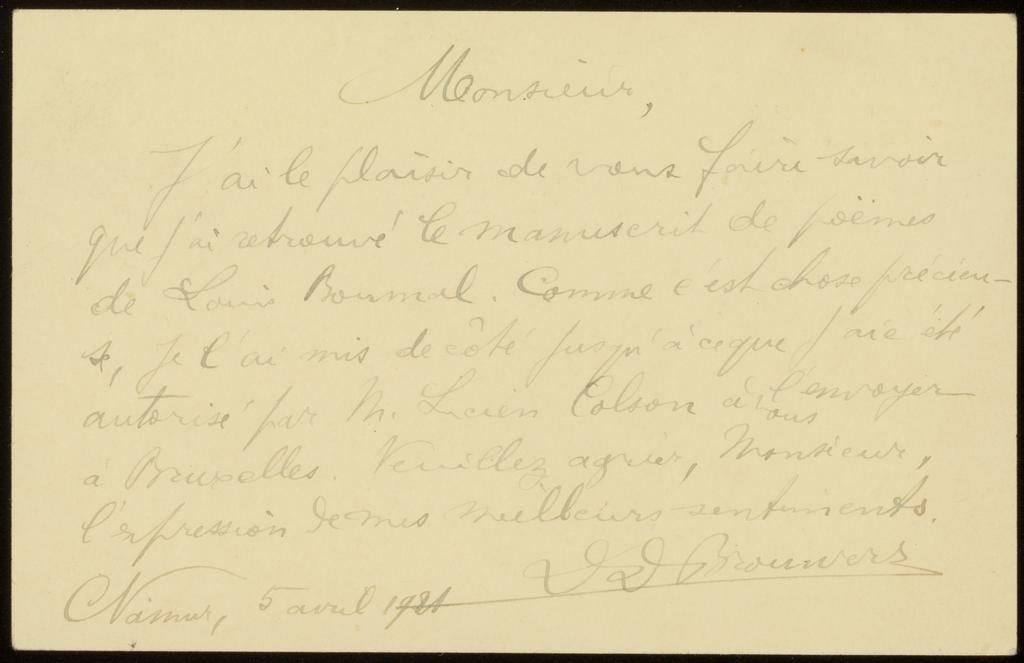 Monsieur,
J'ai le plaisir de vous faire savoir
que j'ai retrouvé le manuscrit de poëmes
de Louis Boumal. Comme c'est chose précieu-
se, je l'ai mis de côté jusqu'à ce que j'aie été
autorisé par M. Lucien Colson à vous l'envoyer
à Bruxelles. Veuillez agréer, Monsieur,
l'expression de mes meilleurs sentiments.
DD Brouwers
Namur, 5 avril 1921